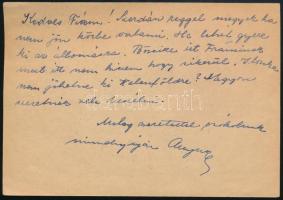 Kedves Fiam! Szerdán reggel megyek ha
nem jön közbe valami. Ha lehet gyere
ki az állomásra. Böske ír Francinak
mert itt nem hiszem hogy sikerül. Ilonka
nem jöhetne ki Kelenföldre? Nagyon
szeretnék vele beszélni.
Meleg szeretettel csókolunk
mindnyájan Anyus